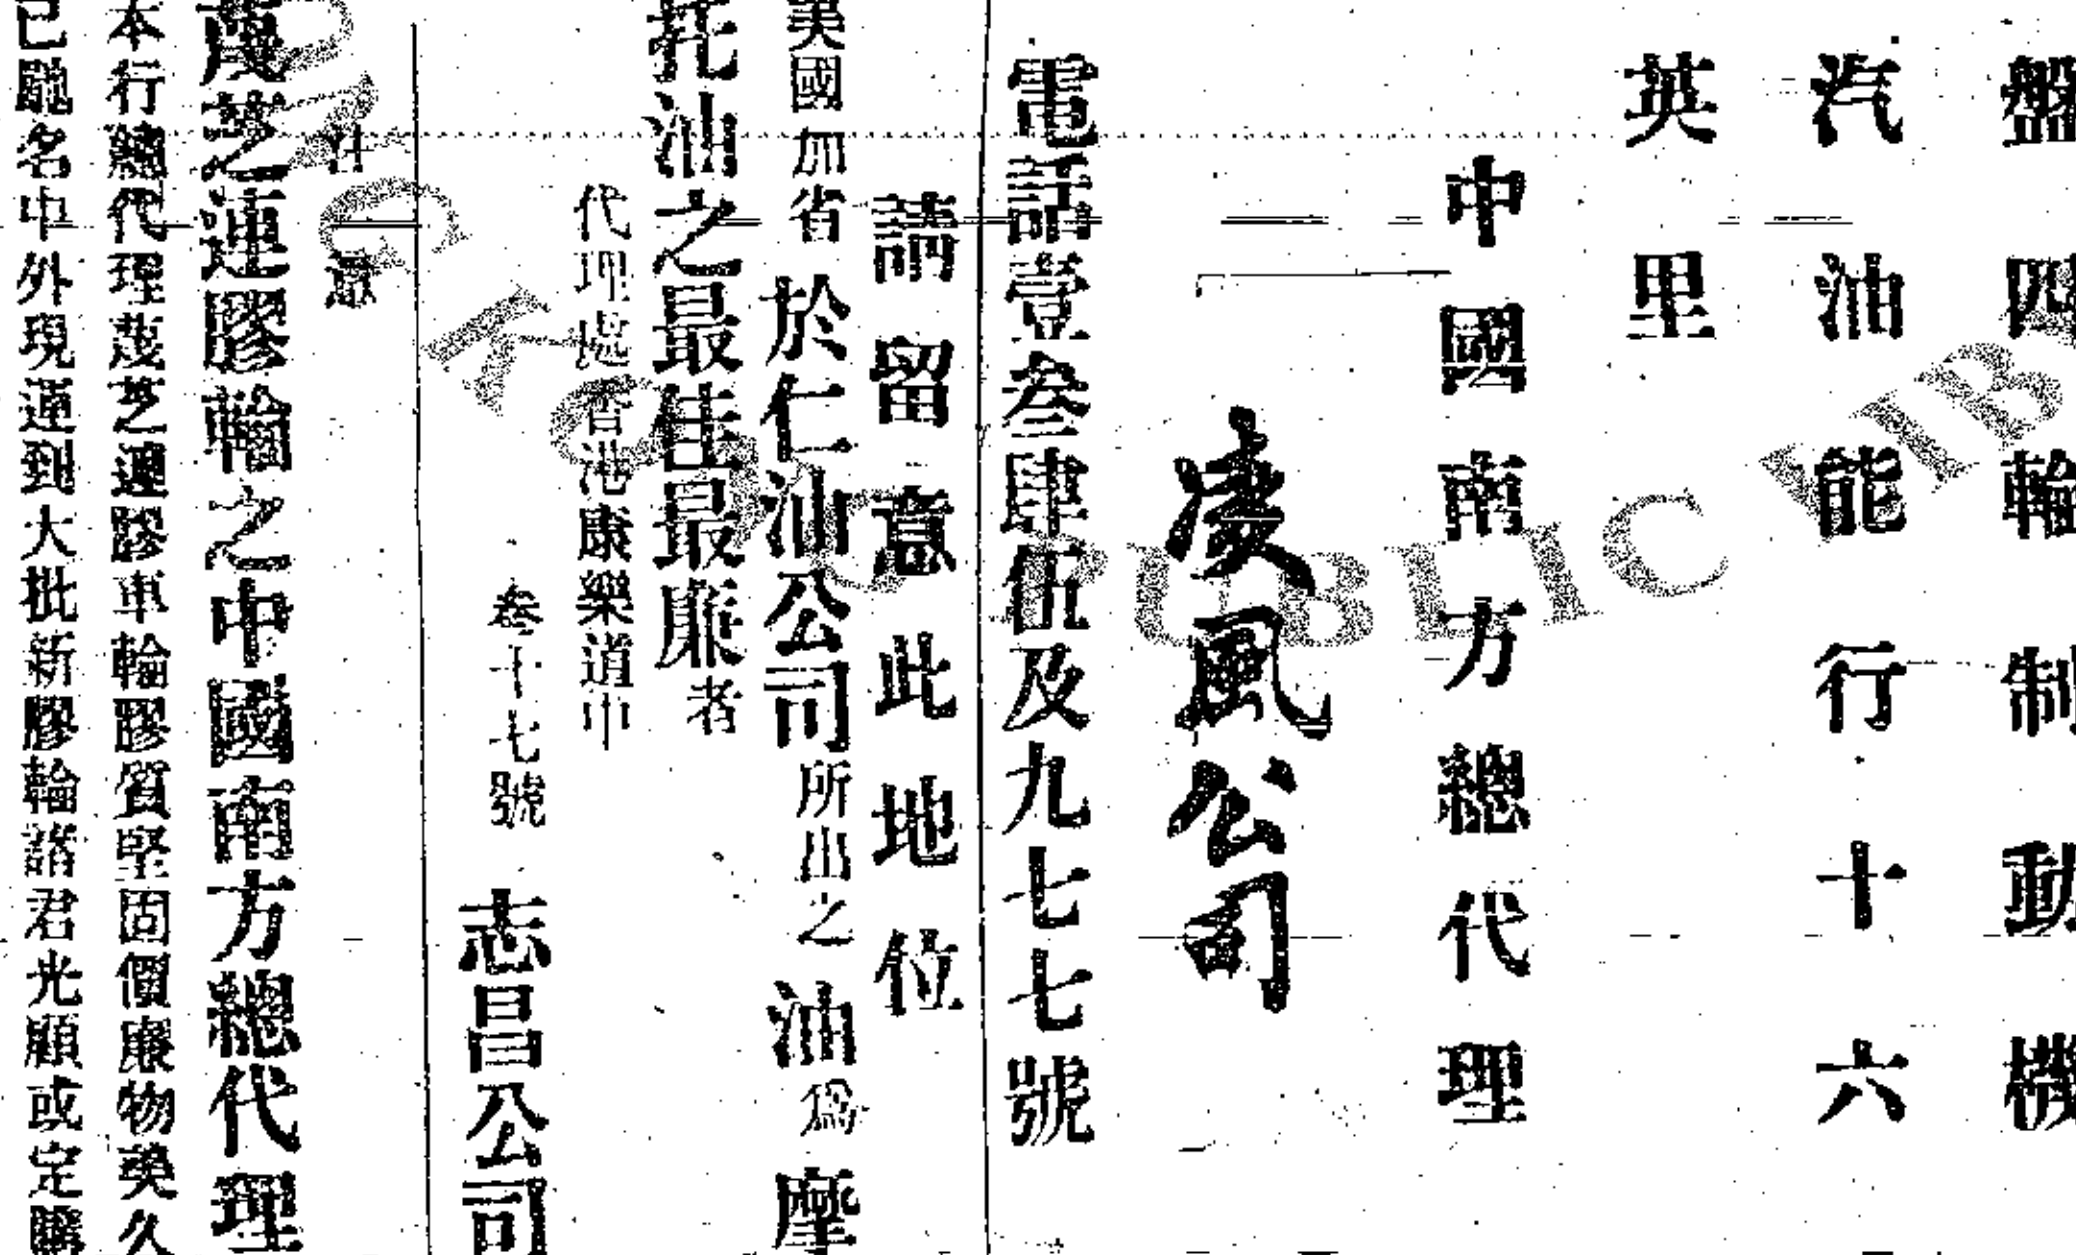 盤四輪制動機
汽油能行十六
英里
中國南方總代理
凌風公司
電話壹叁肆伍及九七七號
請留意此地位
美國加省於仁油公司所出之油為摩
托油之最佳最廉者
代理處香港康樂道中
叁十七號
志昌公司
注意
茂芝連膠輪之中國南方總代理
本行總代理茂芝連膠車輪膠質堅固價廉物美久
已馳名中外現運到大批新膠輪諸君光顧或定購
HONG KONG PUBLIC LIB